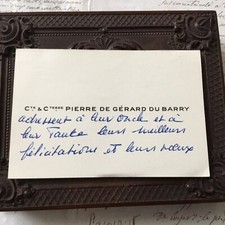 Cte & Ctesse PIERRE DE GÉRARD DU BARRY
adressent à leur Oncle et à
leur Tante leurs meilleurs
félicitations et leurs vœux